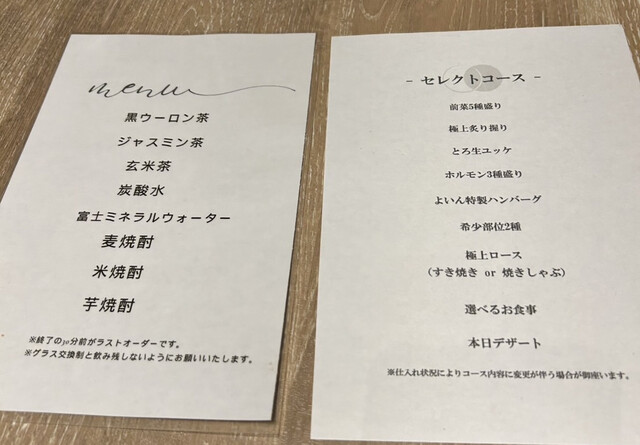 menu
黒ウーロン茶
ジャスミン茶
玄米茶
炭酸水
富士ミネラルウォーター
麦焼酎
米焼酎
芋焼酎
※終了の30分前がラストオーダーです。
※グラス交換制と飲み残しないようにお願いいたします。
- セレクトコース -
前菜5種盛り
極上炙り握り
とろ生ユッケ
ホルモン3種盛り
よいん特製ハンバーグ
希少部位2種
極上ロース
（すき焼き or 焼きしゃぶ）
選べるお食事
本日デザート
※仕入れ状況によりコース内容に変更が伴う場合が御座います。